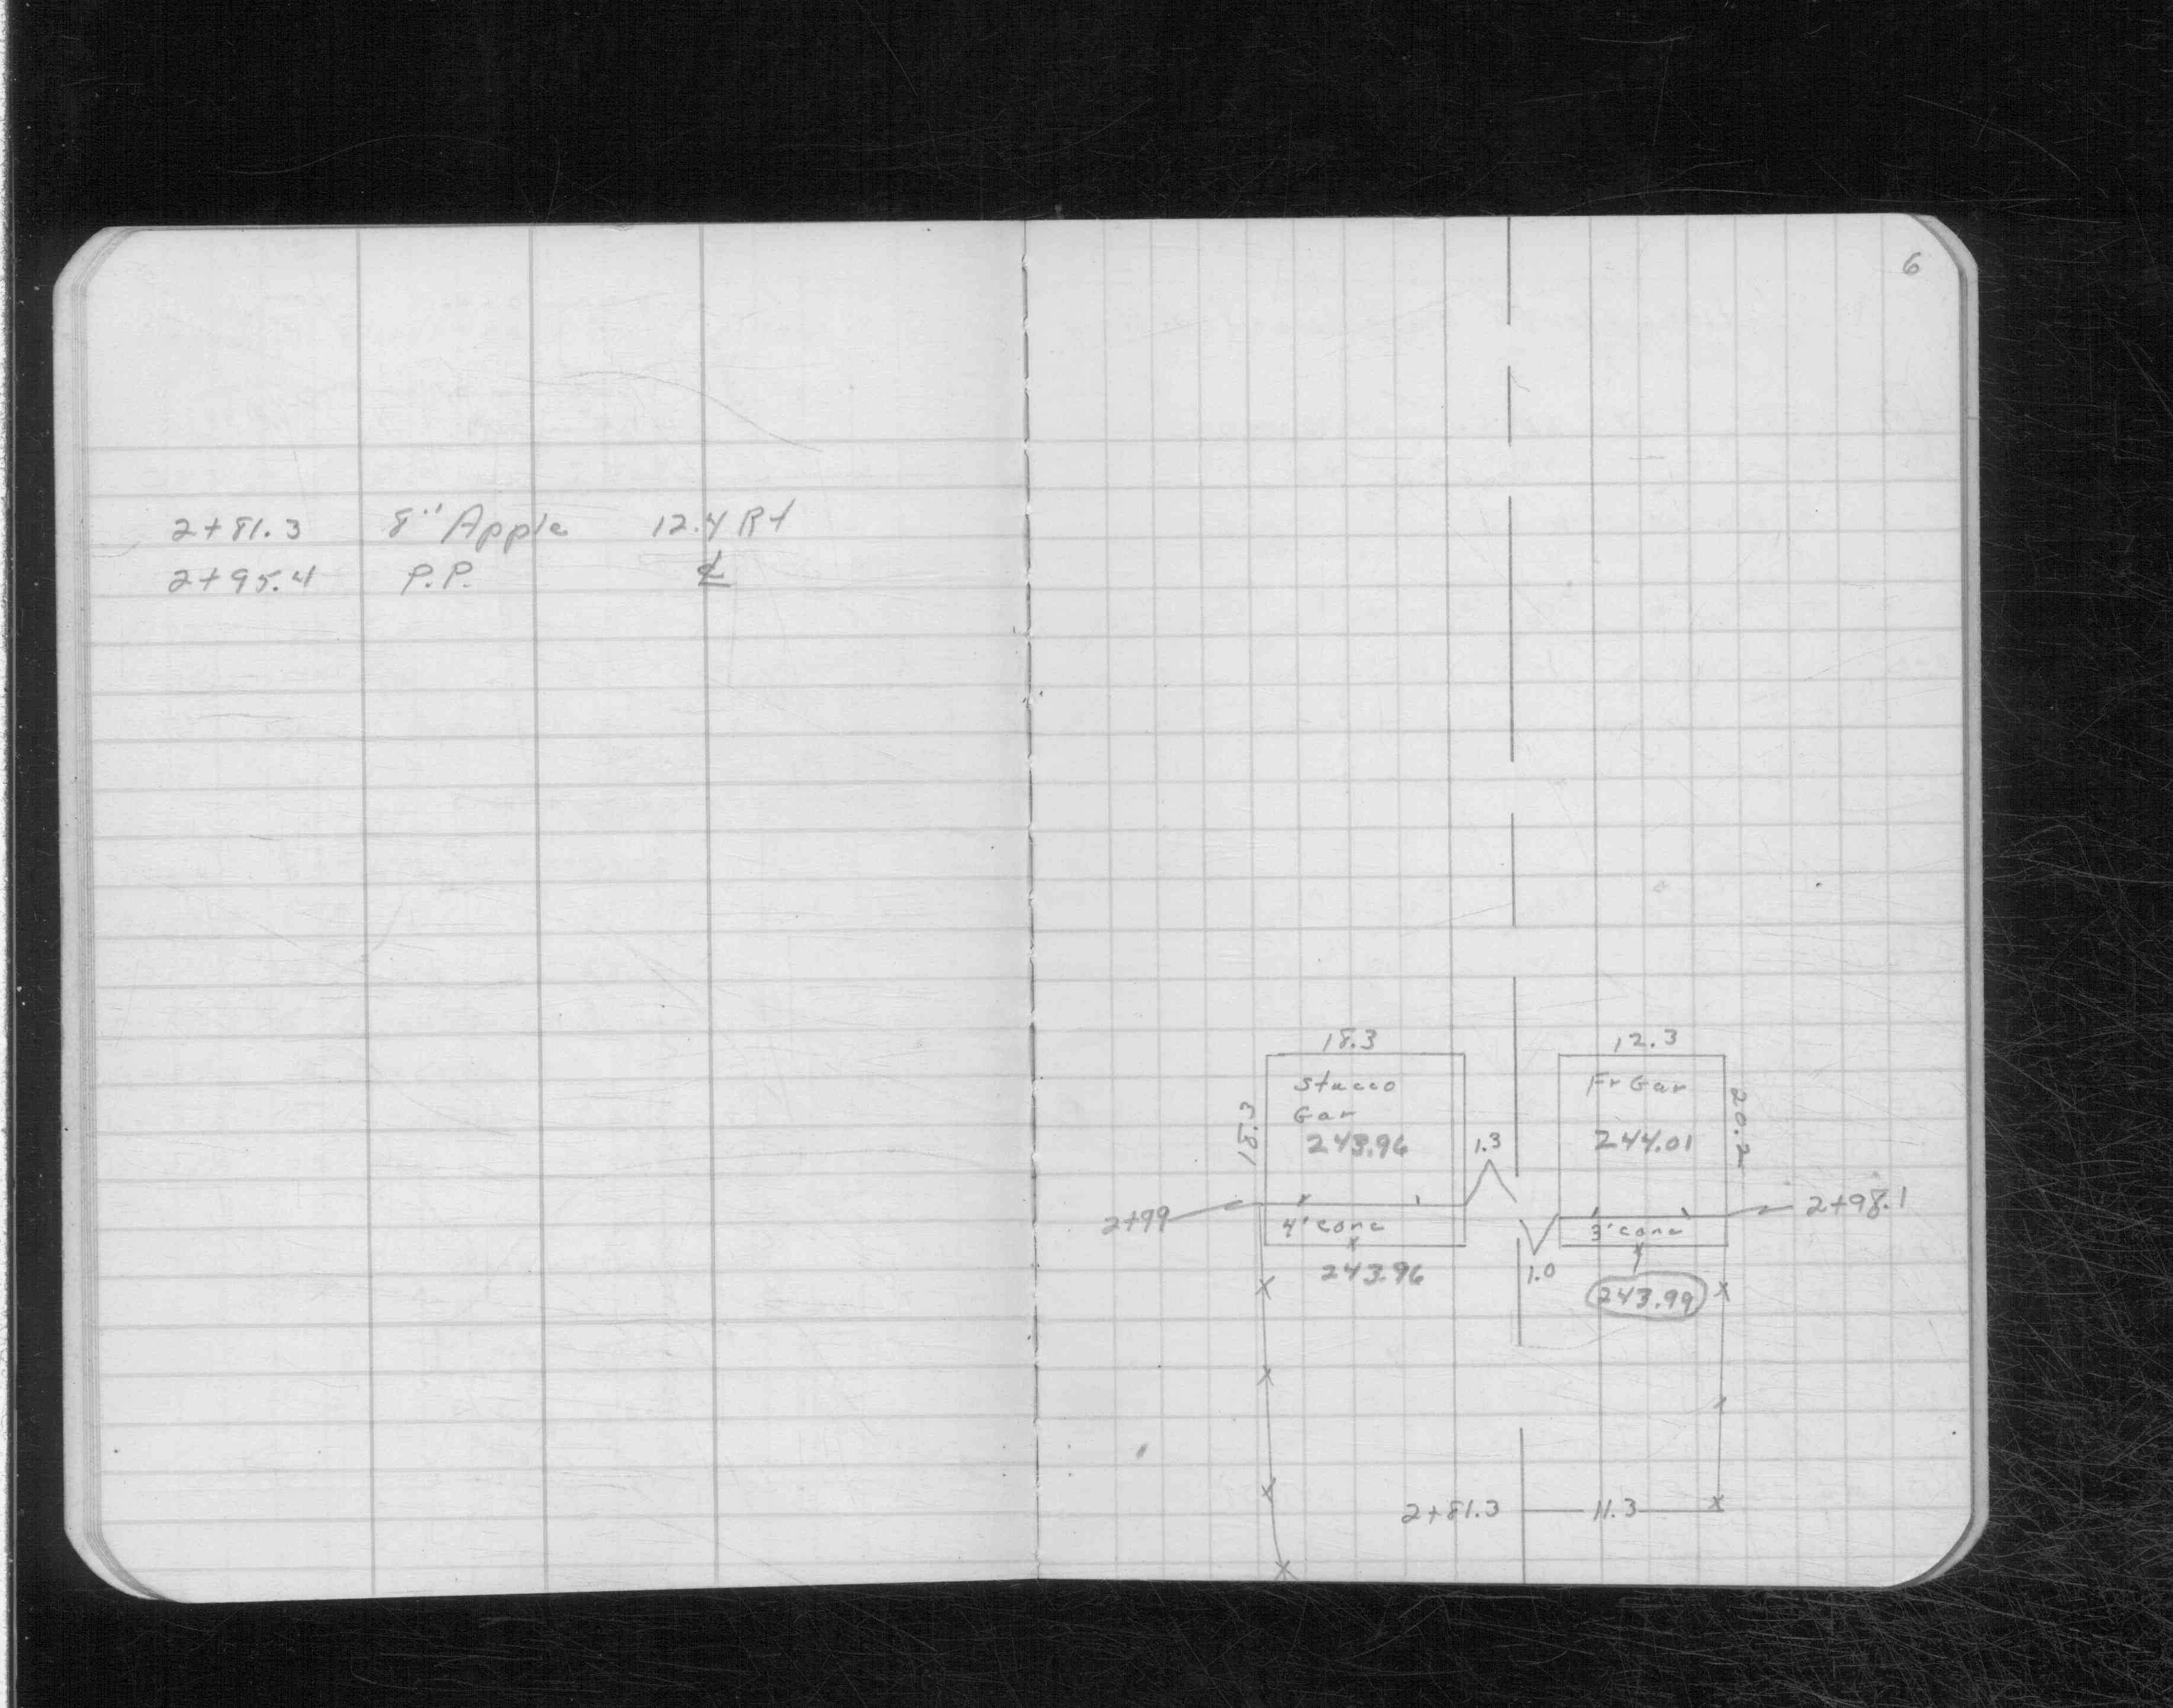 2+81.3 8" Apple 12.4 Rt
2+95.4 P.P. ℄
6
18.3 12.3
Stucco Fr Gar
Gar
18.3 243.96 1.3 244.01 20.2
2+99 4' conc 3' conc 2+98.1
243.96 1.0 243.99
2+81.3 11.3